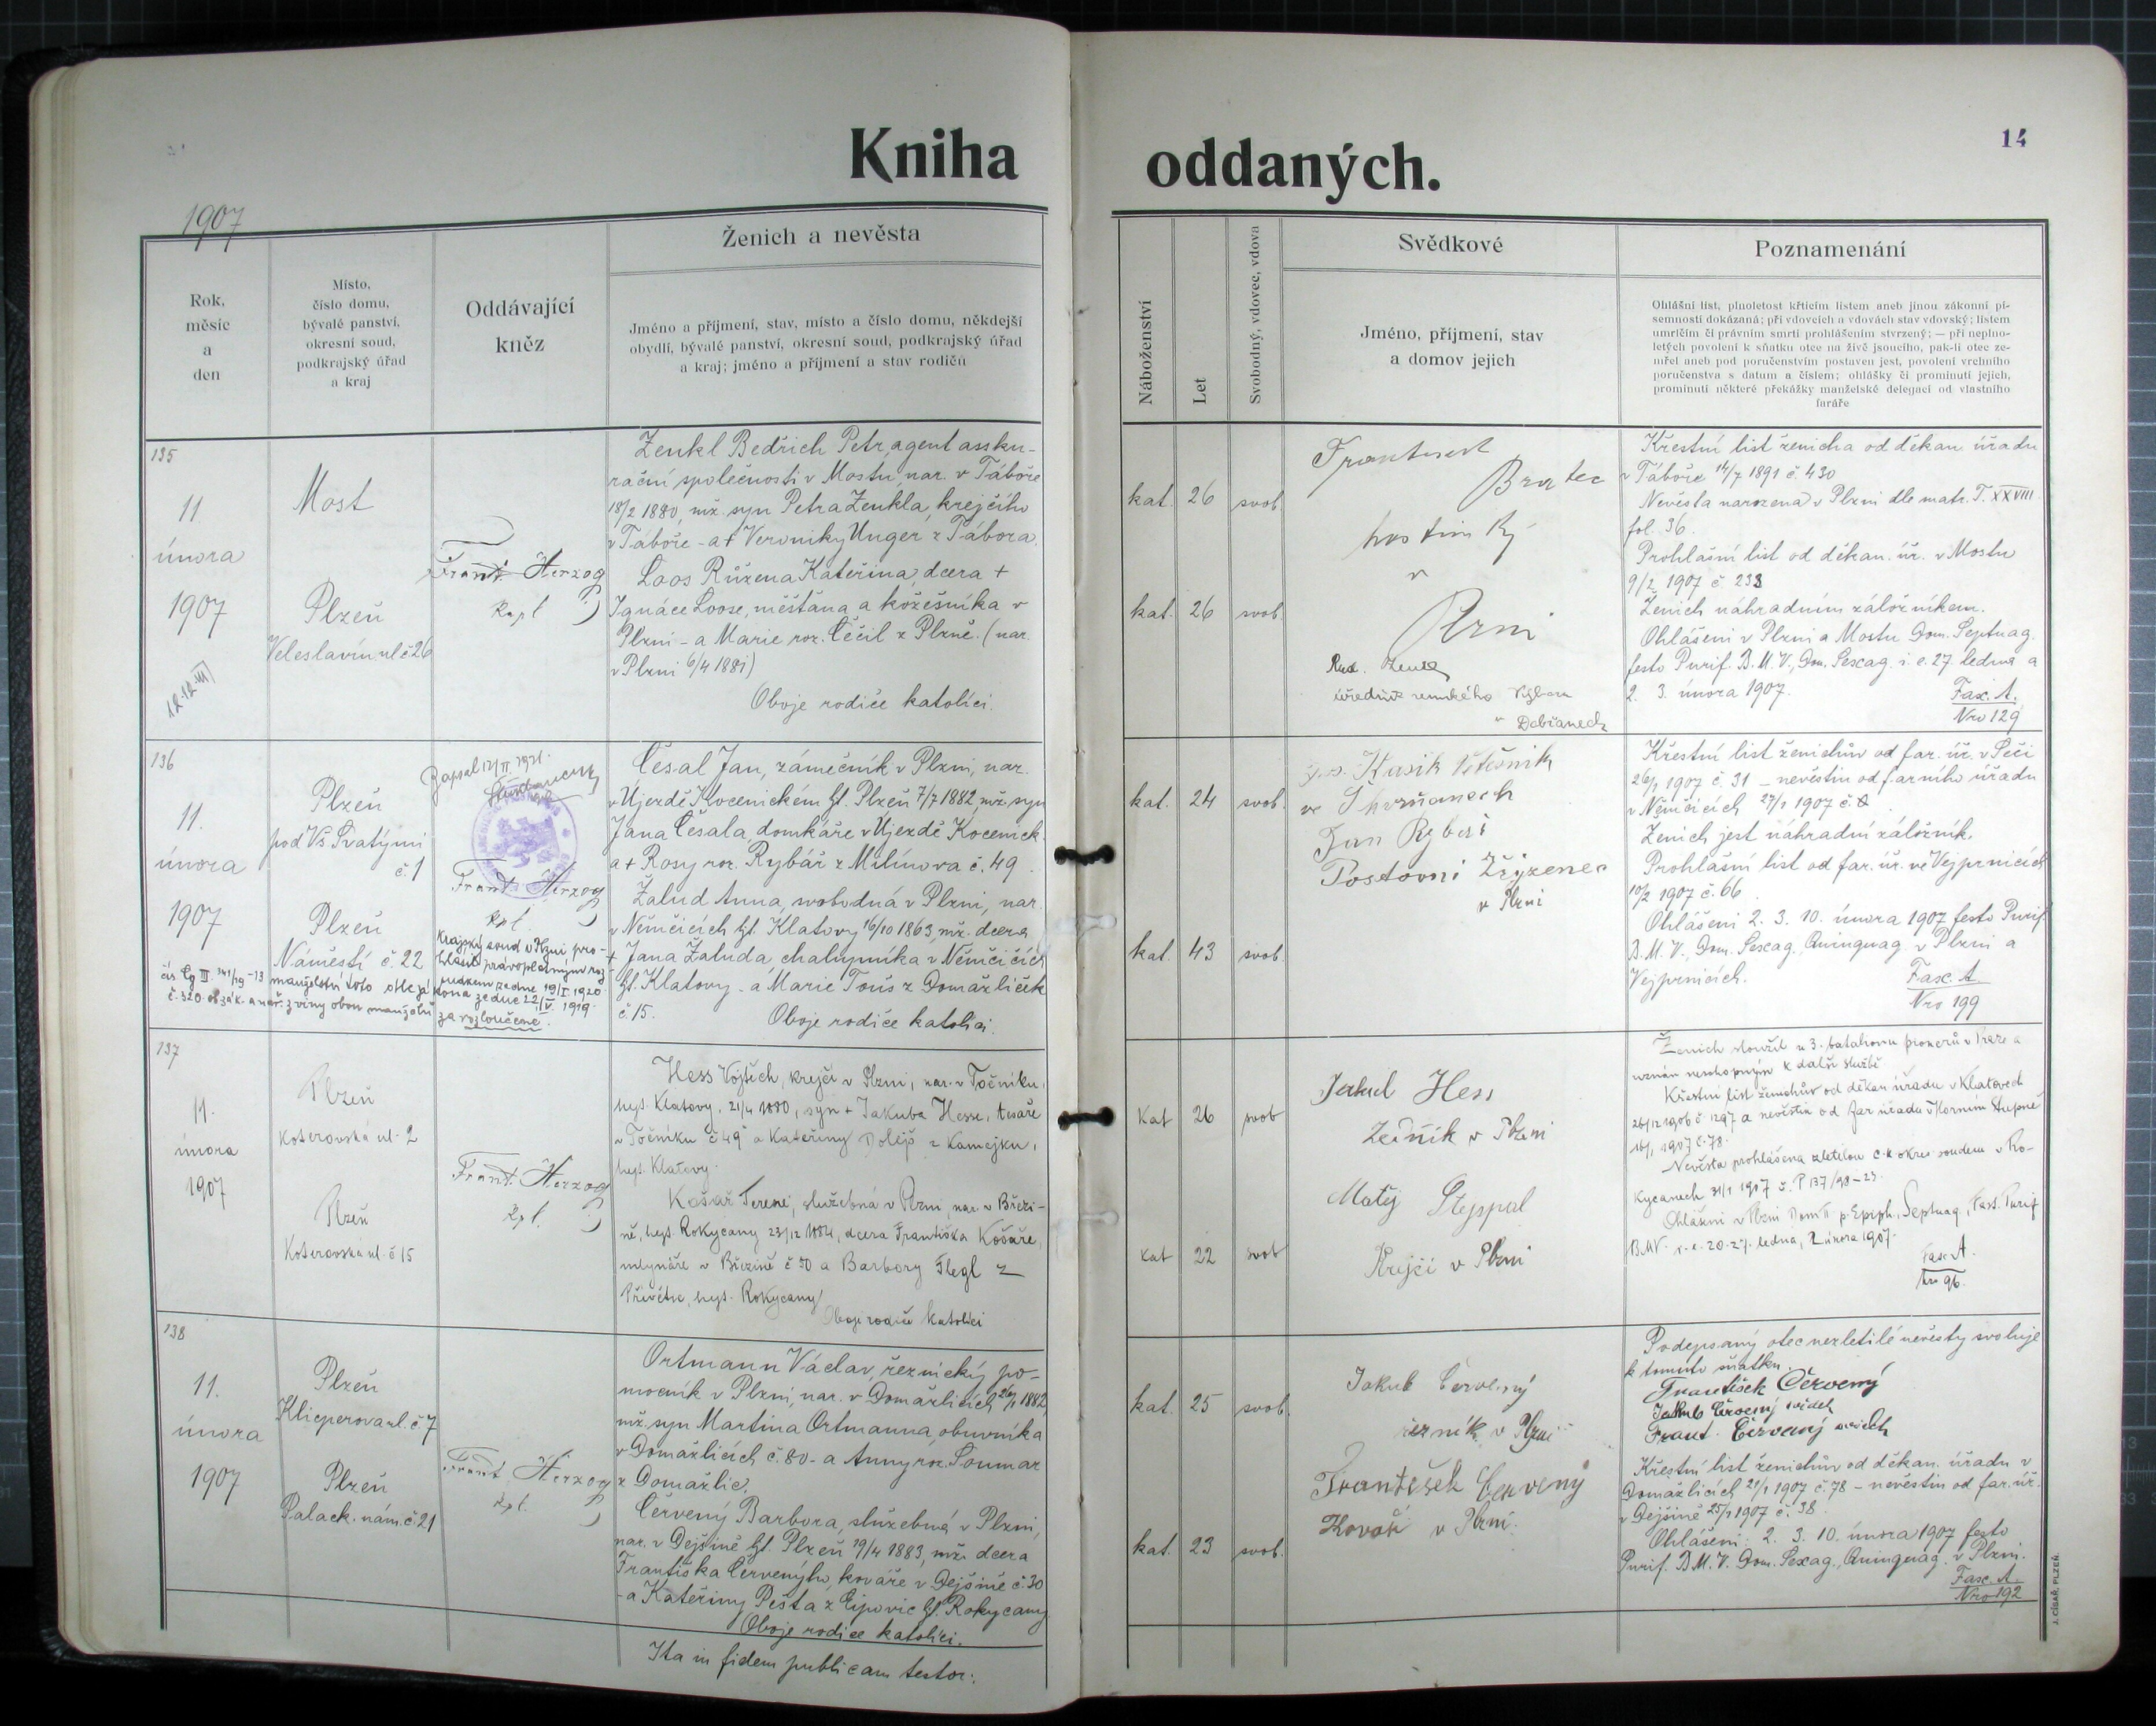 Kniha oddaných.
14
1907
Rok, měsíc a den
Místo, číslo domu, bývalé panství, okresní soud, podkrajský úřad a kraj
Oddávající kněz
Ženich a nevěsta
Jméno a příjmení, stav, místo a číslo domu, někdejší
obydlí, bývalé panství, okresní soud, podkrajský úřad
a kraj; jméno a příjmení a stav rodičů
Náboženství
Let
Svobodný, vdovec, vdova
Svědkové
Jméno, příjmení, stav
a domov jejich
Poznamenání
Ohlášní list, plnoletost křticím listem aneb jinou zákonní pí-
semností dokázaná; při vdovcích a vdovách stav vdovský; listem
umrlčím či právním smrti prohlášením stvrzený; — při neplno-
letých povolení k sňatku otce na živě jsoucího, pak-li otec ze-
mřel aneb pod poručenstvím postaven jest, povolení vrchního
poručenstva s datum a číslem; ohlášky či prominutí jejich,
prominutí některé překážky manželské delegací od vlastního
faráře
135
11
února
1907
Most
Plzeň
Veleslavín. ul č 26
Frant. Herzog
kapl
Zenkl Bedřich Petr, agent assku-
rační společnosti v Mostu, nar. v Táboře
18/2 1880, mž. syn Petra Zenkla, krejčího
v Táboře - a + Veroniky Unger z Tábora.
Loos Růžena Kateřina, dcera +
Ignáce Loose, měšťana a kožešníka v
Plzni - a Marie roz. Čečil z Plzně. (nar.
v Plzni 6/4 1881)
Oboje rodiče katolíci.
kat. 26 svob.
kat. 26 svob.
hostinský
v
Plzni
Rud. Zenkl
v Dobřanech
Křestní list ženicha od děkan. úřadu
v Táboře 14/7 1891 č. 430
Nevěsta narozena v Plzni dle matr. T. XXVIII
fol. 36.
Prohlašní list od děkan. úř. v Mostu
9/2 1907 č 233
Ženich náhradním záložníkem.
Ohlášeni v Plzni a Mostu Dom. Septuag.
festo Purif. B. M. V., Dom. Sexag. i. e. 27. ledna a
2. 3. února 1907.
Fasc. A.
Nro 129
136
11.
února
1907
Plzeň
pod Vš. Svatými
č. 1
Plzeň
Náměstí č. 22
Zapsal 12/II. 1921.
Frant. Herzog
kpl.
Krajský soud v Plzni pro-
hlásil právoplatným roz-
sudkem ze dne 19/I. 1920
čís. Cg III. 341/19-13 manželství toto dle zákona ze dne 22/V. 1919
č. 320. sb. zák. a nař. z viny obou manželů za rozloučené.
Česal Jan, zámečník v Plzni, nar.
v Ujezdě Kocenickém ht. Plzeň 7/7 1882, mž. syn
Jana Česala, domkáře v Ujezdě Kocenick.
a + Rosy roz. Rybář z Milínova č. 49.
Žalud Anna, svobodná v Plzni, nar.
v Němčicích ht. Klatovy 16/10 1863, mž. dcera
+ Jana Žaluda, chalupníka v Němčicích
ht. Klatovy - a Marie Touš z Domažliček
č. 15.
Oboje rodiče katolíci.
kat. 24 svob.
kat. 43 svob.
Jan Rybář
Poštovní Zřyzenec
v Plzni
Křestní list ženichův od far. úř. v Seči
26/1 1907 č. 31 - nevěstin od farního úřadu
v Němčicích 27/1 1907 č. 8
Ženich jest náhradní záložník.
Prohlašní list od far. úř. ve Vejprnicích
10/2 1907 č. 66
Ohlášeni 2. 3. 10. února 1907 festo Purif.
B. M. V., Dom. Sexag., Quinquag. v Plzni a
Vejprnicích.
Fasc. A
Nro 199
137
11.
února
1907
Plzeň
Koterovská ul. 2
Plzeň
Koterovská ul. č 15
Frant. Herzog
kpl.
Hess Vojtěch, krejčí v Plzni, nar. v Točníku,
hejt. Klatovy, 21/4 1880, syn + Jakuba Hesse, tesaře
v Točníku č 49 a Kateřiny Dolejš z Kamejku,
hejt. Klatovy.
Košař Terezie, služebná v Plzni, nar. v Březi-
ně, hejt. Rokycany 23/12 1884, dcera Františka Košaře,
mlynáře v Březině č 30 a Barbory Flegl z
Přívětic, hejt. Rokycany
Oboje rodiče katolíci
Kat 26 svob
Kat 22 svob
Jakub Hess
v Plzni
Matěj
Krejčí v Plzni
Ženich sloužil u 3. batalionu pionerů v Praze a
uznán neschopným k další službě
Křestní list ženichův od děkan. úřadu v Klatovech
26/12 1906 č 1297 a nevěstin od far. úřadu v Horním Stupně
16/1 1907 č. 78.
Nevěsta prohlášena zletilou c. k. okres. soudem v Ro-
kycanech 31/1 1907 č. P 137/98-23.
Ohlášeni v Plzni Dom II p. Epiph., Septuag., Fest. Purif
B.M.V. i. e. 20. 27. ledna, 2 února 1907.
Fasc. A.
Nro 96.
138
11.
února
1907
Plzeň
Klicperova ul. č 7
Plzeň
Palack. nám. č 21
Frant. Herzog
kpl.
Ortmann Václav, řeznický po-
mocník v Plzni, nar. v Domažlicích 26/1 1882,
mž. syn Martina Ortmanna, obuvníka
v Domažlicích č. 80 - a Anny roz. Soumar
z Domažlic.
Červený Barbora, služebná v Plzni,
nar. v Dejšině ht. Plzeň 19/4 1883, mž. dcera
Františka Červenýho, kováře v Dejšině č 30
- a Kateřiny Pešta z Ejpovic ht. Rokycany
Oboje rodiče katolíci.
Ita in fidem publicam testor:
kat. 25 svob.
kat. 23 svob.
Jakub Červený
řezník v Plzni
František Červený
Kovář v Plzni
Podepsaný otec nezletilé nevěsty svoluje
k tomuto sňatku.
František Červený
Jakub Červený svědek
Frant. Červený svědek
Křestní list ženichův od děkan. úřadu v
Domažlicích 21/1 1907 č. 78 - nevěstin od far. úř.
v Dejšině 25/1 1907 č. 38
Ohlášeni: 2. 3. 10. února 1907 festo
Purif. B. M. V. Dom. Sexag., Quinquag. v Plzni.
Fasc. A.
Nro 192
J. CÍSAŘ, PLZEŇ.